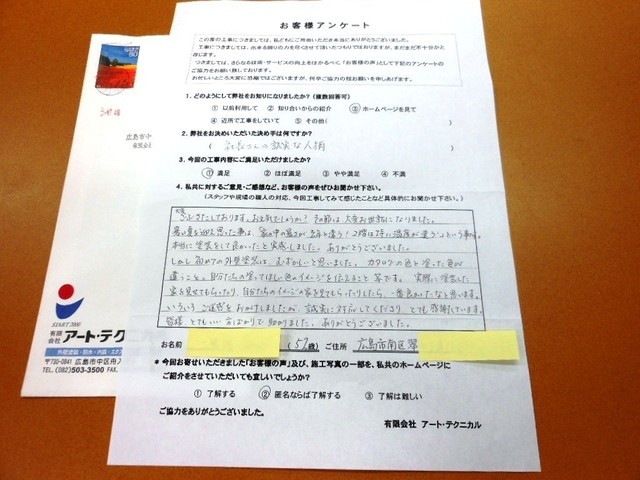 お客様アンケート
この度の工事につきましては、私どもにご用命いただき本当にありがとうございました。
工事につきましては、出来る限りの力を尽くさせて頂いたつもりではおりますが、まだまだ不十分かと
存じます。
つきましては、さらなる技術・サービスの向上をはかるべく、「お客様の声」として下記のアンケートの
ご協力をお願い致しております。
お忙しいところ大変に恐縮ではございますが、何卒ご協力の程お願いを申しあげます。
1. どのようにして弊社をお知りになりましたか？（複数回答可）
① 以前利用して ② 知り合いからの紹介 ③ ホームページを見て
④ 近所で工事をしていて ⑤ その他( )
2. 弊社をお決めいただいた決め手は何ですか？
( 社長さんの誠実な人柄 )
3. 今回の工事内容にご満足いただけましたか？
① 満足 ② ほぼ満足 ③ やや満足 ④ 不満
4. 私共に対するご意見・ご感想など、お客様の声をぜひお聞かせ下さい。
（スタッフや現場の職人の対応、今回工事してみて感じたことなど具体的にお聞かせ下さい）
ごぶさたしております。お元気でしょうか？その節は大変お世話になりました。
暑い夏を迎え思った事は、家の中の暑さが去年と違う！2階は特に温度が違う～という事です。
本当に塗装をして良かったと実感しました。ありがとうございました。
しかし初めての外壁塗装は、むずかしいと思いました。カタログの色と塗った色が
違うこと。自分たちの塗ってほしい色のイメージを伝えること等です。実際に塗装した
家を見せてもらったり、自分たちのイメージの家を見てもらったりしたら、一番良かったなと思います。
いろいろご迷惑をおかけしましたが、誠実に対応してくださり、とても感謝しています。
皆様、とてもいい方ばかりで助かりました。ありがとうございました。
お名前 (57歳) ご住所 広島市南区翠
* 今回お寄せいただきました「お客様の声」及び、施工写真の一部を、私共のホームページに
ご紹介をさせていただいても宜しいでしょうか？
① 了解する ② 匿名ならば了解する ③ 了解は難しい
ご協力をありがとうございました。
有限会社 アート・テクニカル
広島市中
有限会社
START 2000
有限会社 アート・テクニ
外壁塗装・防水・内装・エクス
〒730-0841 広島市中区舟入
TEL. (082) 503-3500 FAX.